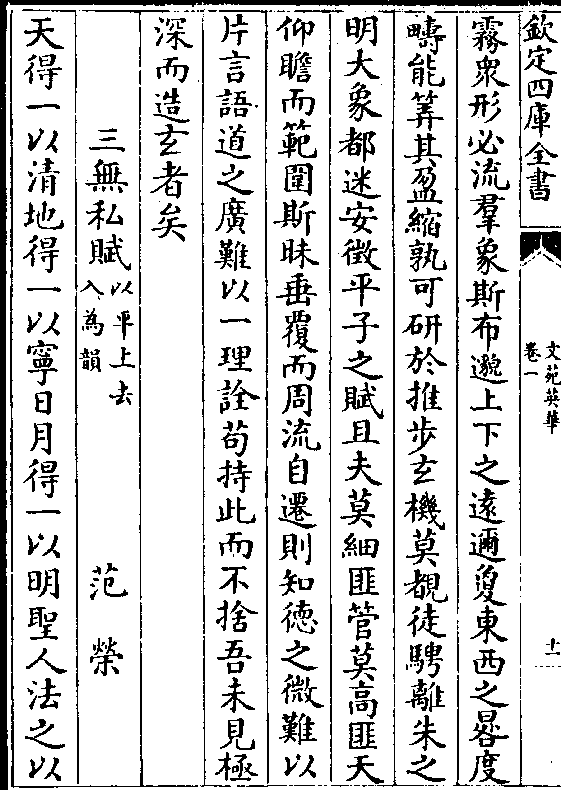 欽定四庫全書
文苑英華
卷一
十一
霧衆形必流羣象斯布邈上下之遠邇敻東西之晷度
疇能筭其盈縮孰可研於推步玄機莫覩徒騁離朱之
明大象都迷安徵平子之賦且夫莫細匪管莫高匪天
仰瞻而範圍斯昧垂覆而周流自遷則知德之微難以
片言語道之廣難以一理詮苟持此而不捨吾未見極
深而造玄者矣
三無私賦以平上去入為韻
范榮
天得一以清地得一以寧日月得一以明聖人法之以